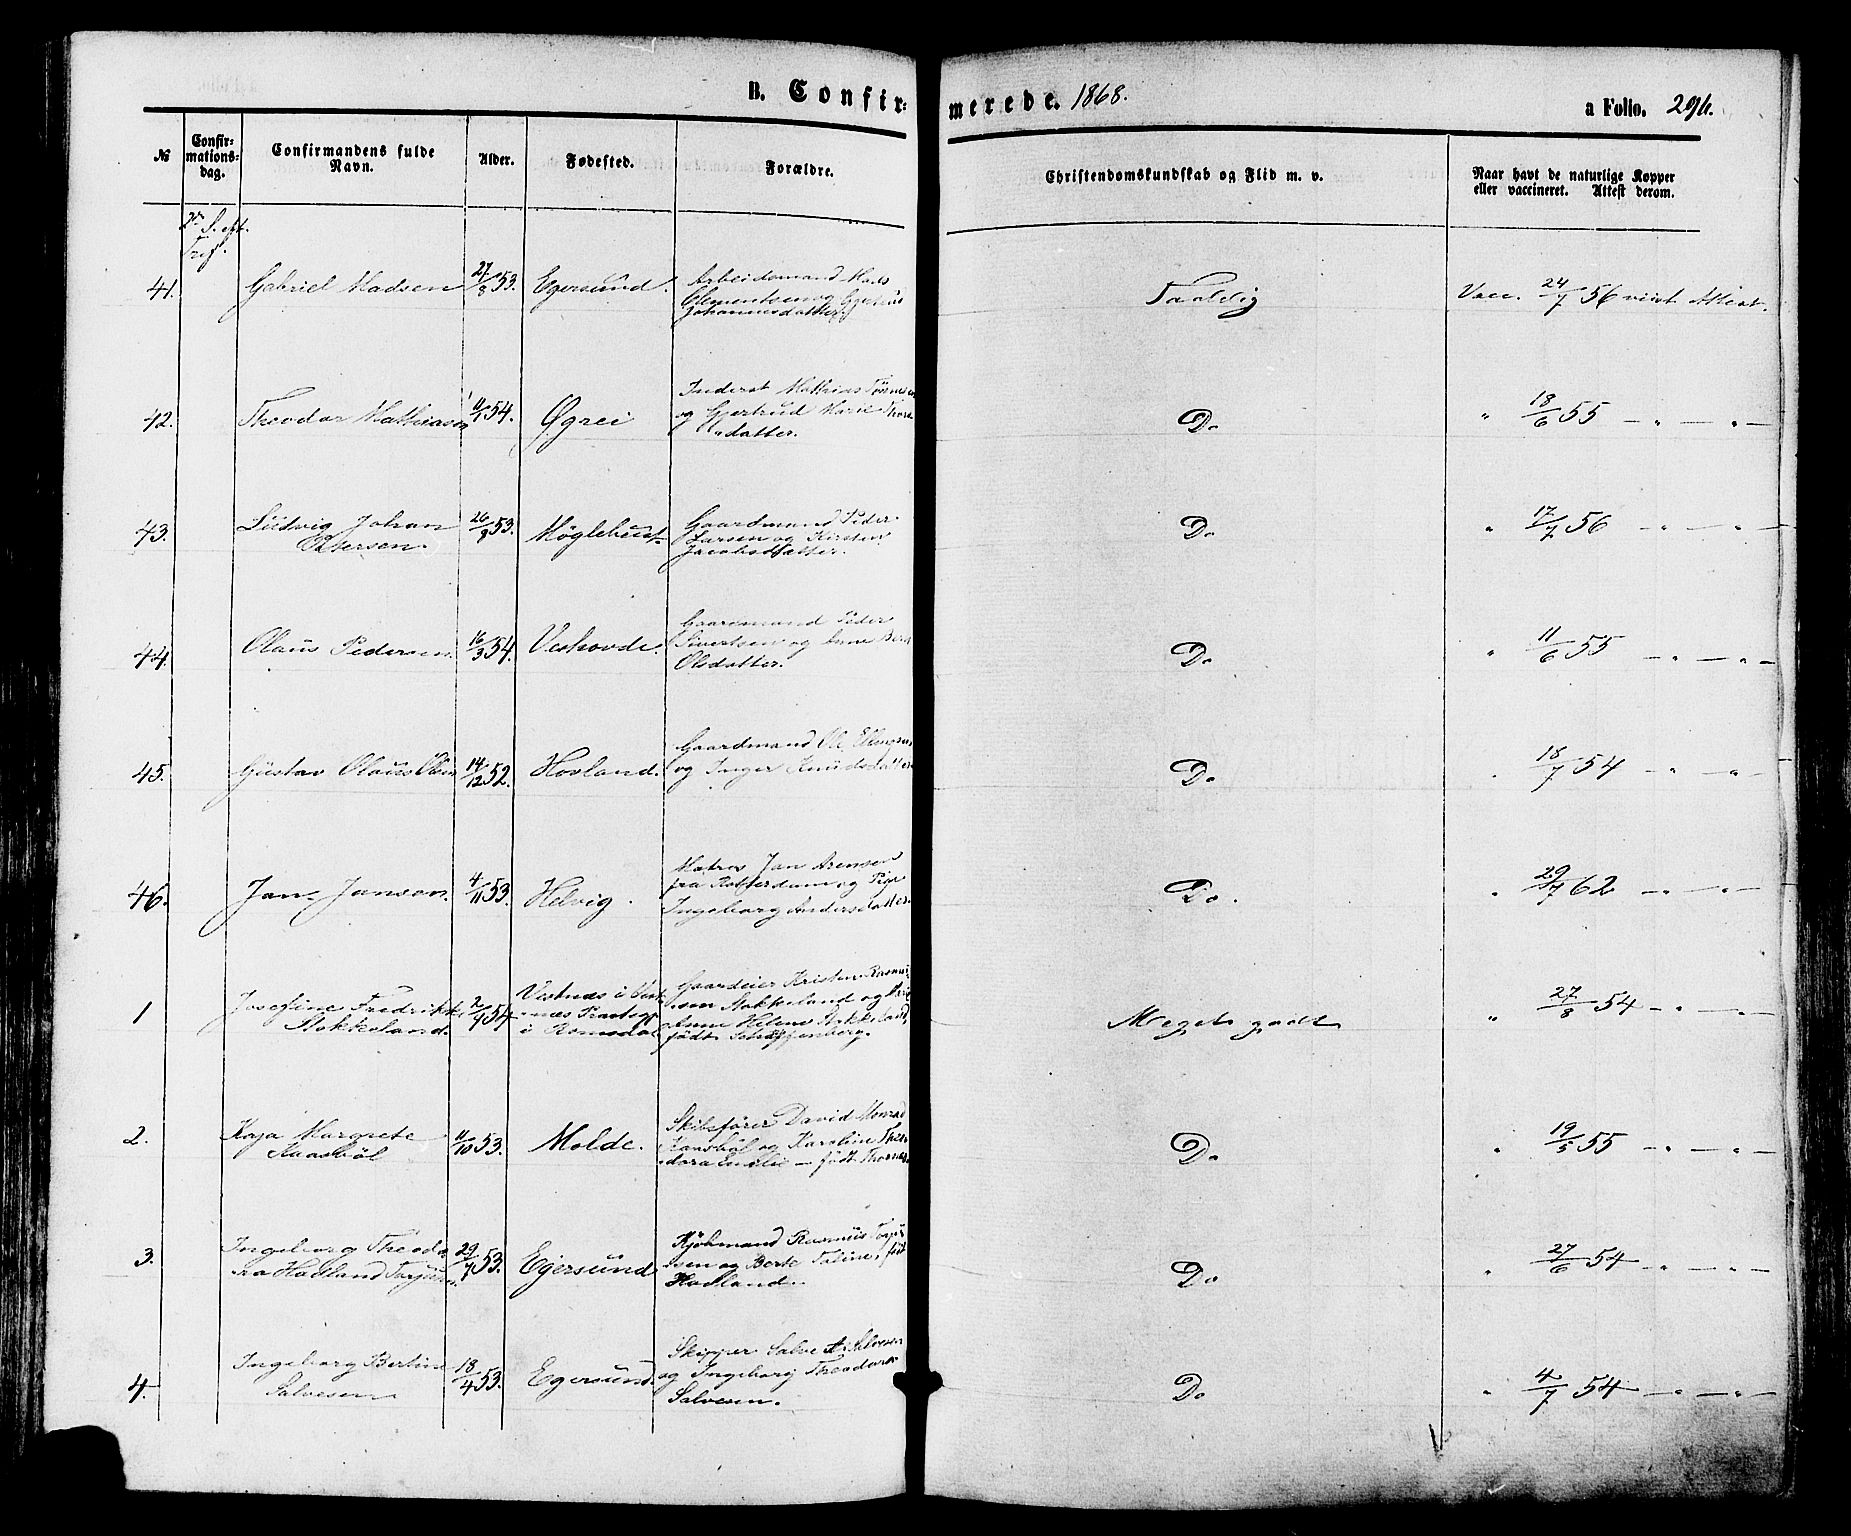 B. Confirmerede. 1868.
a Folio. 296.
№ Confirmationsdag. Confirmandens fulde Navn. Alder. Fødested. Forældre. Christendomskundskab og Flid m. v. Naar havt de naturlige Kopper eller vaccineret. Attest derom.
S. eft.
Tref.
41. Gabriel Madsen 27/8 53. Egersund. Arbeidsmand Mads
Clementsen og
Johannesdatter Taalelig Vacc. 24/7 56 viist Attest.
42. Theodor Mathiasen 11/1 54. Øgrei Inderst Mathias Tönnesen
og Gjertrud Marie
datter. Do " 18/6 55 — " — " —
43. Ludvig Johan
Petersen. 26/8 53. Møglebust Gaardmand Peder
Larsen og Kirsten
Jacobsdatter. Do " 17/7 56 — " — " —
44. Olaus Pedersen. 16/3 54. Veshovde. Gaardmand Peder
Sivertsen og Anne Berte
Olsdatter. Do " 11/6 55 — " — " —
45. Gustav Olaus Olsen 14/12 52. Hovland. Gaardmand Ole Ellingsen
og Inger Knudsdatter Do " 18/7 54 — " — " —
46. Jan Janson. 4/11 53. Helvig. Matros Jan Arensen
fra Rotterdam og Pige
Ingeborg Andersdatter Do. " 29/7 62 — " — " —
1 Josefine Fredrikke
Stokkeland. 2/4 54 Vestnæs i Vest-
næs Præstegj
i Romsdal Gaardeier Kristen Rasmus-
sen Stokkeland og
Anne Helene Stokkeland,
født Meget godt " 27/8 54 — " — " —
2. Kaja Margrete
Kaasbøl 11/10 53. Molde. Skibsfører David Monrad
Kaasbøl og Karoline Theo-
dora Emilie — født Do " 19/5 55 — " — " —
3. Ingeborg Theodo-
ra Hadland Torjusen. 29/7 53. Egersund Kjøbmand Rasmus Torju-
sen og Berte Taline, født
Hadland. Do " 27/6 54 — " — " —
4. Ingeborg Bertine
Salvesen 18/4 53. Egersund. Skipper Salve A. Salvesen
og Ingeborg Theodora
Salvesen. Do " 4/7 54 — " — " —